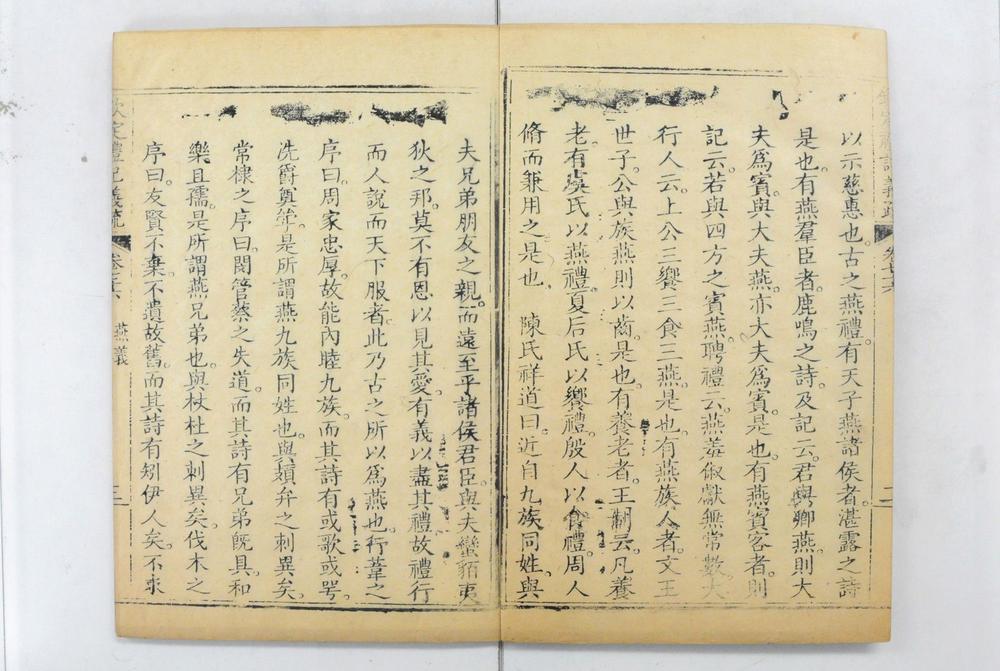 以示慈惠也古之燕禮有天子燕諸侯者湛露之詩
是也有燕羣臣者鹿鳴之詩及記云君與卿燕則大
夫爲賓與大夫燕亦大夫爲賓是也有燕賓客者則
記云若與四方之賓燕聘禮云燕羞俶獻無常數大
行人云上公三饗三食三燕是也有燕族人者文王
世子公與族燕則以齒是也有養老者王制云凡養
老有虞氏以燕禮夏后氏以饗禮殷人以食禮周人
脩而兼用之是也　陳氏祥道曰近自九族同姓與
夫兄弟朋友之親而遠至乎諸侯君臣與夫蠻貊夷
狄之邦莫不有恩以見其愛有義以盡其禮故禮行
而人說而天下服者此乃古之所以爲燕也行葦之
序曰周家忠厚故能內睦九族而其詩有或歌或咢
洗爵奠斝是所謂燕九族同姓也與頍弁之刺異矣
常棣之序曰閔管蔡之失道而其詩有兄弟旣具和
樂且孺是所謂燕兄弟也與杕杜之刺異矣伐木之
序曰友賢不棄不遺故舊而其詩有矧伊人矣不求
欽定禮記義疏
卷七十六
燕義
三